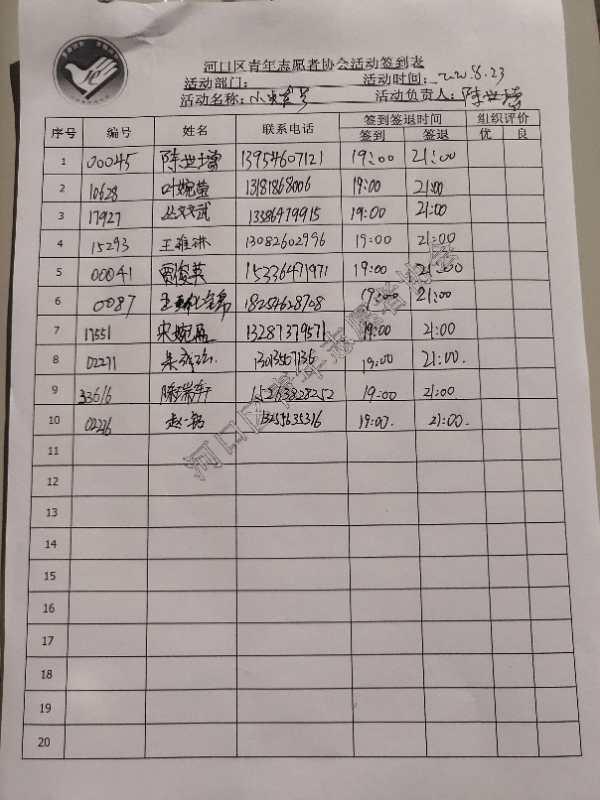 河口区青年志愿者协会活动签到表
活动部门: 活动时间: 2020.8.23
活动名称: 活动负责人: 陈世增
序号 编号 姓名 联系电话 签到签退时间 组织评价
签到 签退 优 良
1 00045 陈世增 13954607121 19:00 21:00
2 10628 叶婉莹 13181868006 19:00 21:00
3 17927 丛文武 13386479915 19:00 21:00
4 15293 王雅琳 13082602996 19:00 21:00
5 00041 贾俊英 15336471971 19:00 21:00
6 0087 18254628708 19:00 21:00
7 17551 13287379571 19:00 21:00
8 02271 13013507136 19:00 21:00
9 33616 陈瑞轩 15263828252 19:00 21:00
10 02226 13255635316 19:00. 21:00.
11
12
13
14
15
16
17
18
19
20
河口区青年志愿者协会